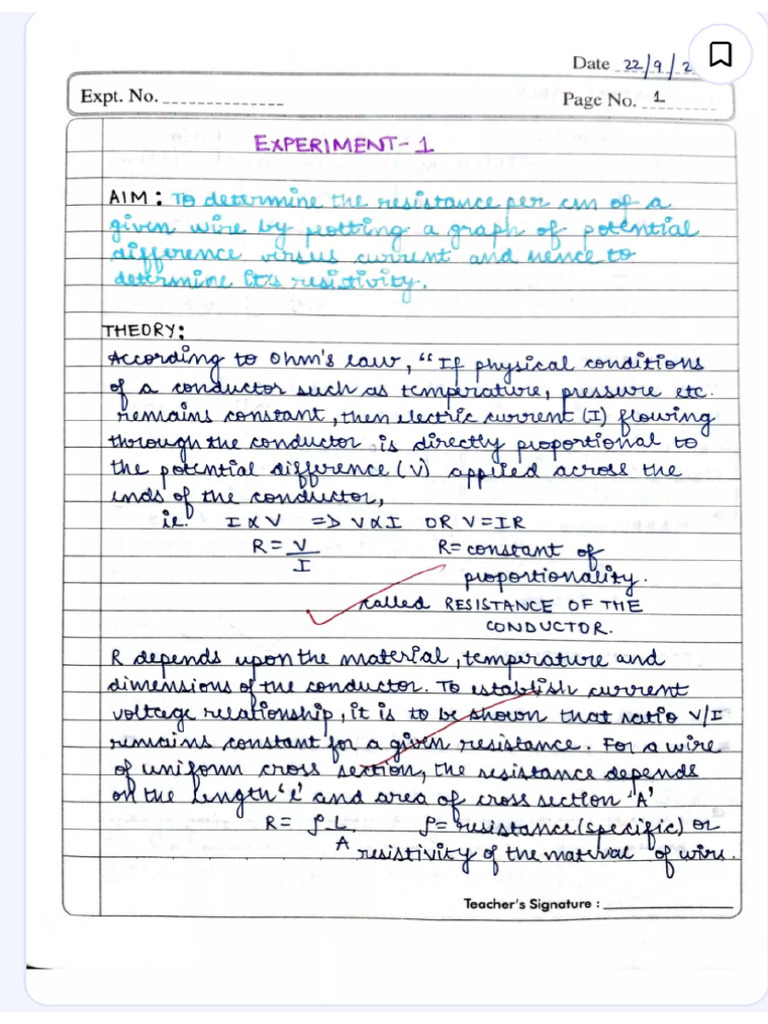 Date 22/9/2
Expt. No.
Page No. 1
EXPERIMENT-1
AIM: To determine the resistance per cm of a
given wire by plotting a graph of potential
difference versus current and hence to
determine it's resistivity.
THEORY:
According to Ohm's law, "If physical conditions
of a conductor such as temperature, pressure etc.
remains constant, then electric current (I) flowing
through the conductor is directly proportional to
the potential difference (V) applied across the
ends of the conductor,
ie. I ∝ V => V ∝ I OR V = IR
R = V/I R = constant of
proportionality.
called RESISTANCE OF THE
CONDUCTOR.
R depends upon the material, temperature and
dimensions of the conductor. To establish current
voltage relationship, it is to be shown that ratio V/I
remains constant for a given resistance. For a wire
of uniform cross section, the resistance depends
on the length 'l' and area of cross section 'A'
R = ρ L/A ρ = resistance (specific) or
resistivity of the material of wire.
Teacher's Signature :